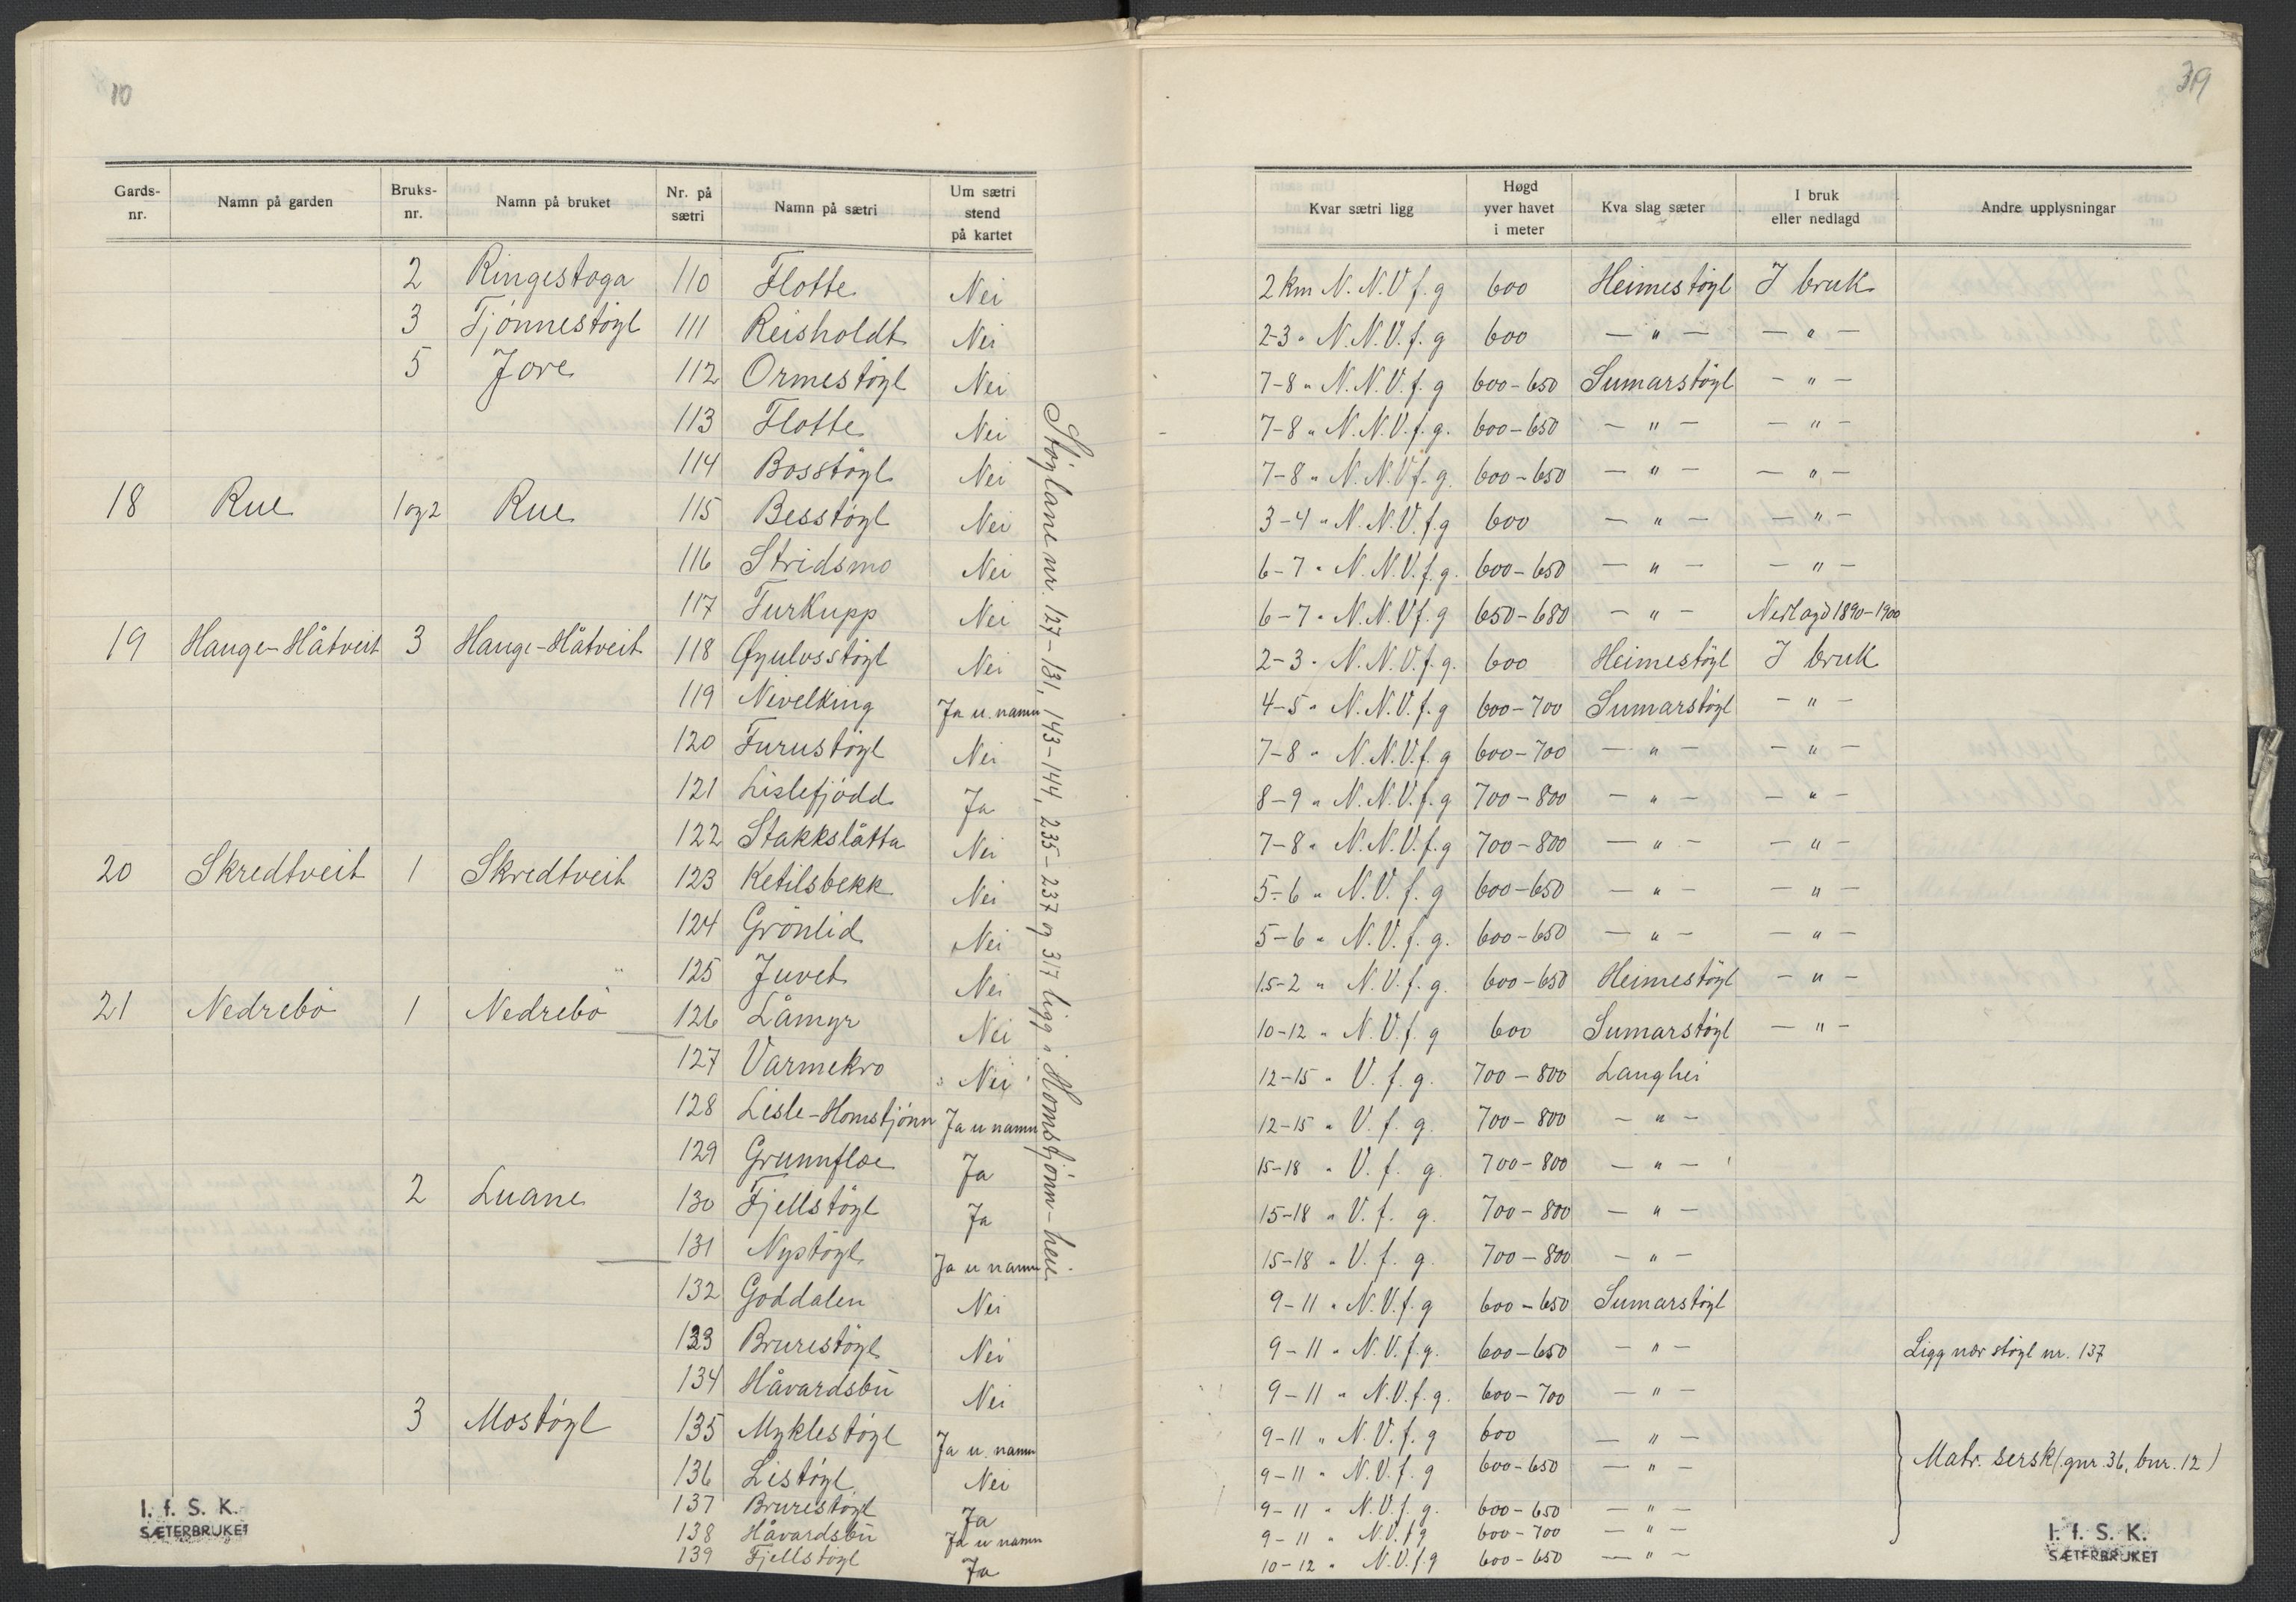 10
39
Gards-nr. | Namn på garden | Bruks-nr. | Namn på bruket | Nr. på sætri | Namn på sætri | Um sætri stend på kartet | Kvar sætri ligg | Høgd yver havet i meter | Kva slag sæter | I bruk eller nedlagd | Andre upplysningar
2 Ringestoga 110 Flotte Nei 2 km N.N.V f. g 600 Heimestøyl I bruk
3 Tjønnestøyl 111 Reisholdt Nei 2-3 " N.N.V. f. g 600 — " — — " —
5 Jore 112 Ormestøyl Nei 7-8 " N.N.V. f. g 600-650 Sumarstøyl — " —
113 Flotte Nei 7-8 " N.N.V. f. g. 600-650 — " — — " —
114 Bosstøyl Nei 7-8 " N.N.V f. g. 600-650 — " — — " —
18 Rue 1 og 2 Rue 115 Besstøyl Nei 3-4 " N.N.V. f. g 600 — " — — " —
116 Stridsmo Nei 6-7 " N.N.V. f. g. 600-650 — " — — " —
117 Turkupp Nei 6-7 " N.N.V f. g 650-680 — " — Nedlagd 1890-1900
19 Hauge-Håtveit 3 Hauge-Håtveit 118 Øyulvsstøyl Nei 2-3 " N.N.V. f. g. 600 Heimestøyl I bruk
119 Nivelking Ja u. namn 4-5 " N.N.V. f. g 600-700 Sumarstøyl — " —
120 Furustøyl Nei 7-8 " N.N.V. f. g 600-700 — " — — " —
121 Lislefjødd Ja 8-9 " N.N.V. f. g 700-800 — " — — " —
122 Stakkslåtta Nei 7-8 " N.N.V. f. g 700-800 — " — — " —
20 Skredtveit 1 Skredtveit 123 Ketilsbekk Nei 5-6 " N.V. f. g 600-650 — " — — " —
124 Grönlid Nei 5-6 " N.V. f. g. 600-650 — " — — " —
125 Juvet Nei 1.5-2 " N.V. f. g. 600-650 Heimestøyl — " —
21 Nedrebø 1 Nedrebø 126 Låmyr Nei 10-12 " N.V. f. g 600 Sumarstøyl — " —
127 Varmekro Nei 12-15 " V. f. g. 700-800 Langhei
128 Lisle-Homstjønn Ja u namn 12-15 " V. f. g. 700-800 — " —
129 Grunnfloe Ja 15-18 " V. f. g. 700-800 — " —
2 Luane 130 Fjellstøyl Ja 15-18 " V. f. g. 700-800 — " —
131 Nystøyl Ja u namn 15-18 " V. f. g. 700-800 — " —
132 Goddalen Nei 9-11 " N.V. f. g 600-650 Sumarstøyl
133 Brurestøyl Nei 9-11 " N.V. f. g. 600-650 — " — Ligg nær støyl nr. 137
134 Håvardsbu Nei 9-11 " N.V. f. g. 600-700 — " —
3 Mostøyl 135 Myklestøyl Ja u. namn 9-11 " N.V. f. g 600 — " —
136 Listøyl Nei 9-11 " N.V. f. g 600-650 — " — Matr. sersk. (gnr. 36, bnr. 12)
137 Brurestøyl Ja 9-11 " N.V. f. g. 600-650 — " —
138 Håvardsbu Ja u namn 9-11 " N.V. f g 600-700 — " —
139 Fjellstøyl Ja 10-12 " N.V. f. g 600-650 — " —
Støylane nr. 127-131, 143-144, 235-237 og 317 ligg i Homstjønn-heii.
I. f. S. K.
SÆTERBRUKET
I. f. S. K.
SÆTERBRUKET